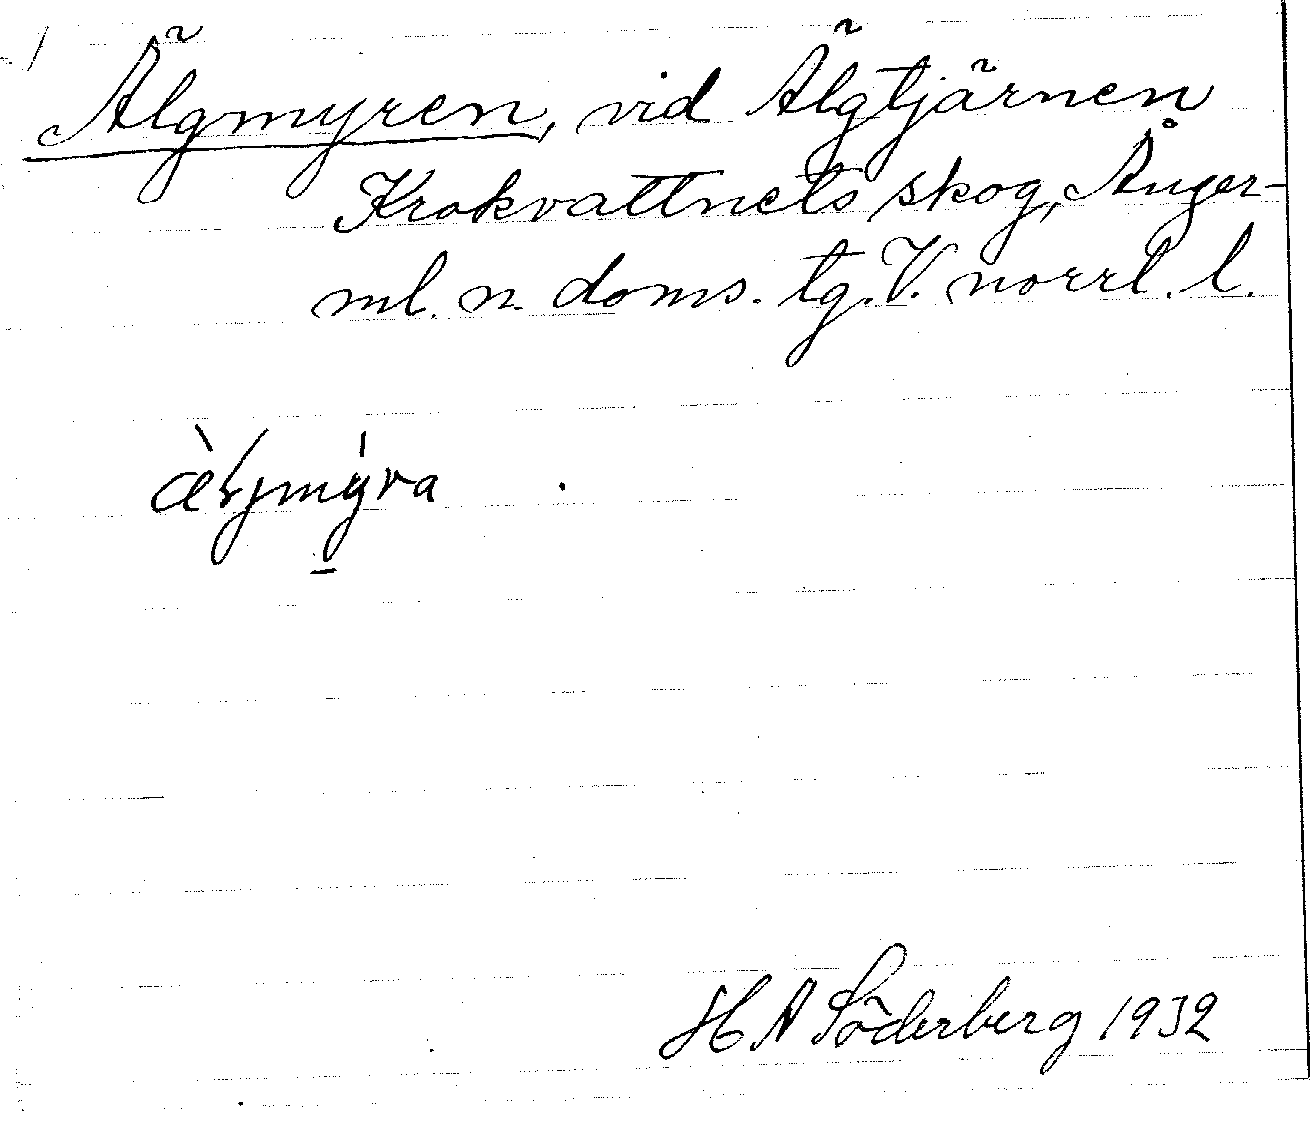 Älgmyren, vid Älgtjärnen
Krokvattnets skog, Ånger-
ml. n. doms. tg. V. norrl. l.
H A Söderberg 1932